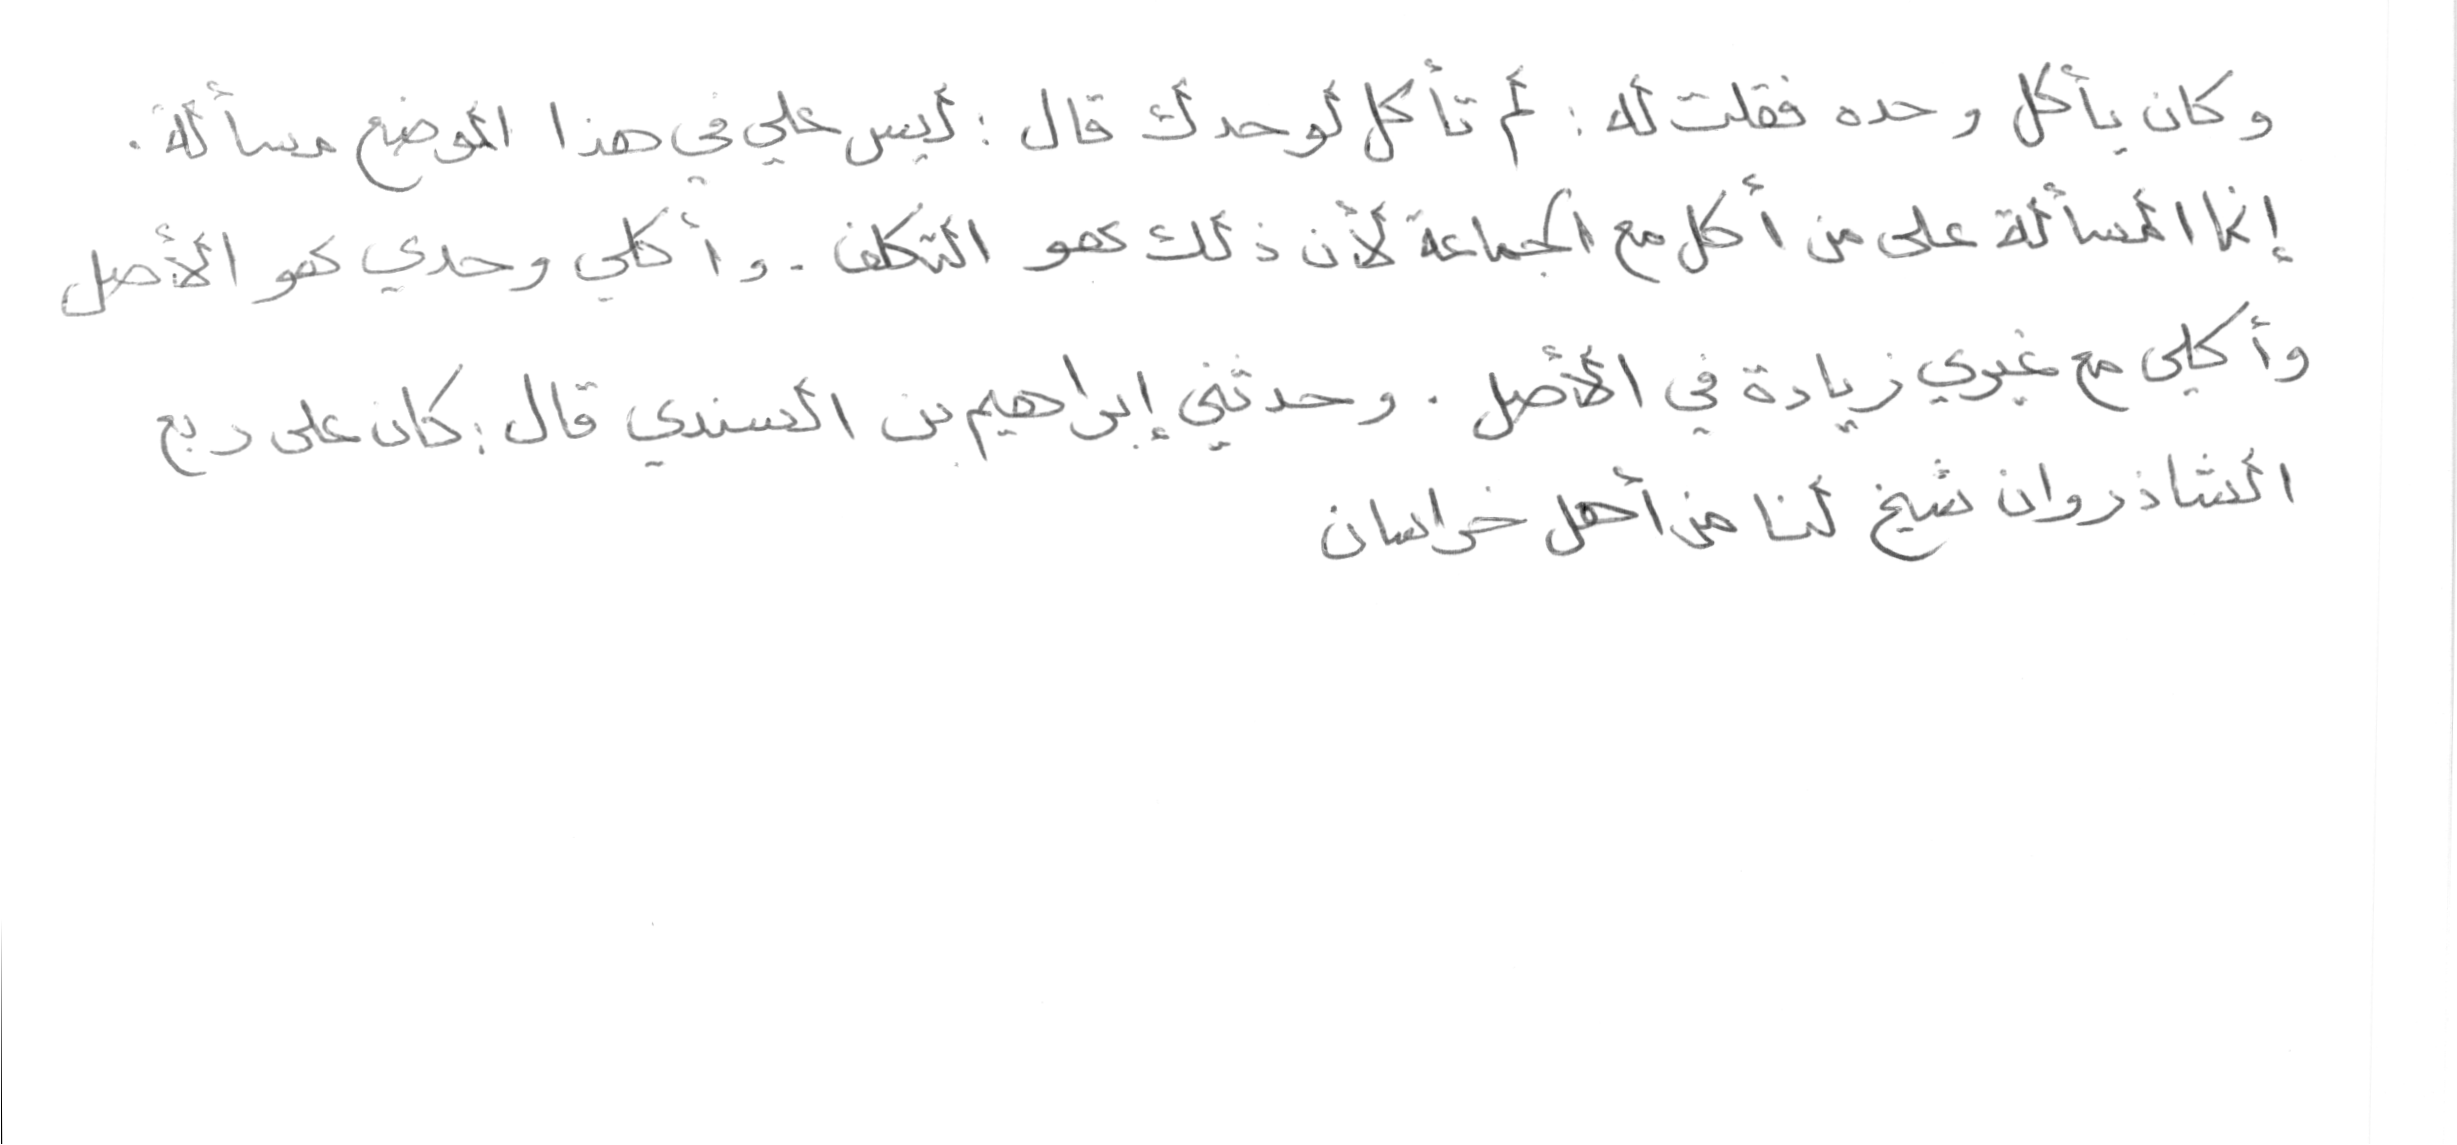 وكان يأكل وحده فقلت له : لم تأكل لوحدك قال : ليس علي في هذا الموضع مسألة .
إنما المسألة على من أكل مع الجماعة لأن ذلك هو التكلف . وأكلي وحدي هو الأصل
وأكلي مع غيري زيادة في الأصل . وحدثني إبراهيم بن السندي قال : كان على ربع
الشاذروان شيخ لنا من أهل خراسان